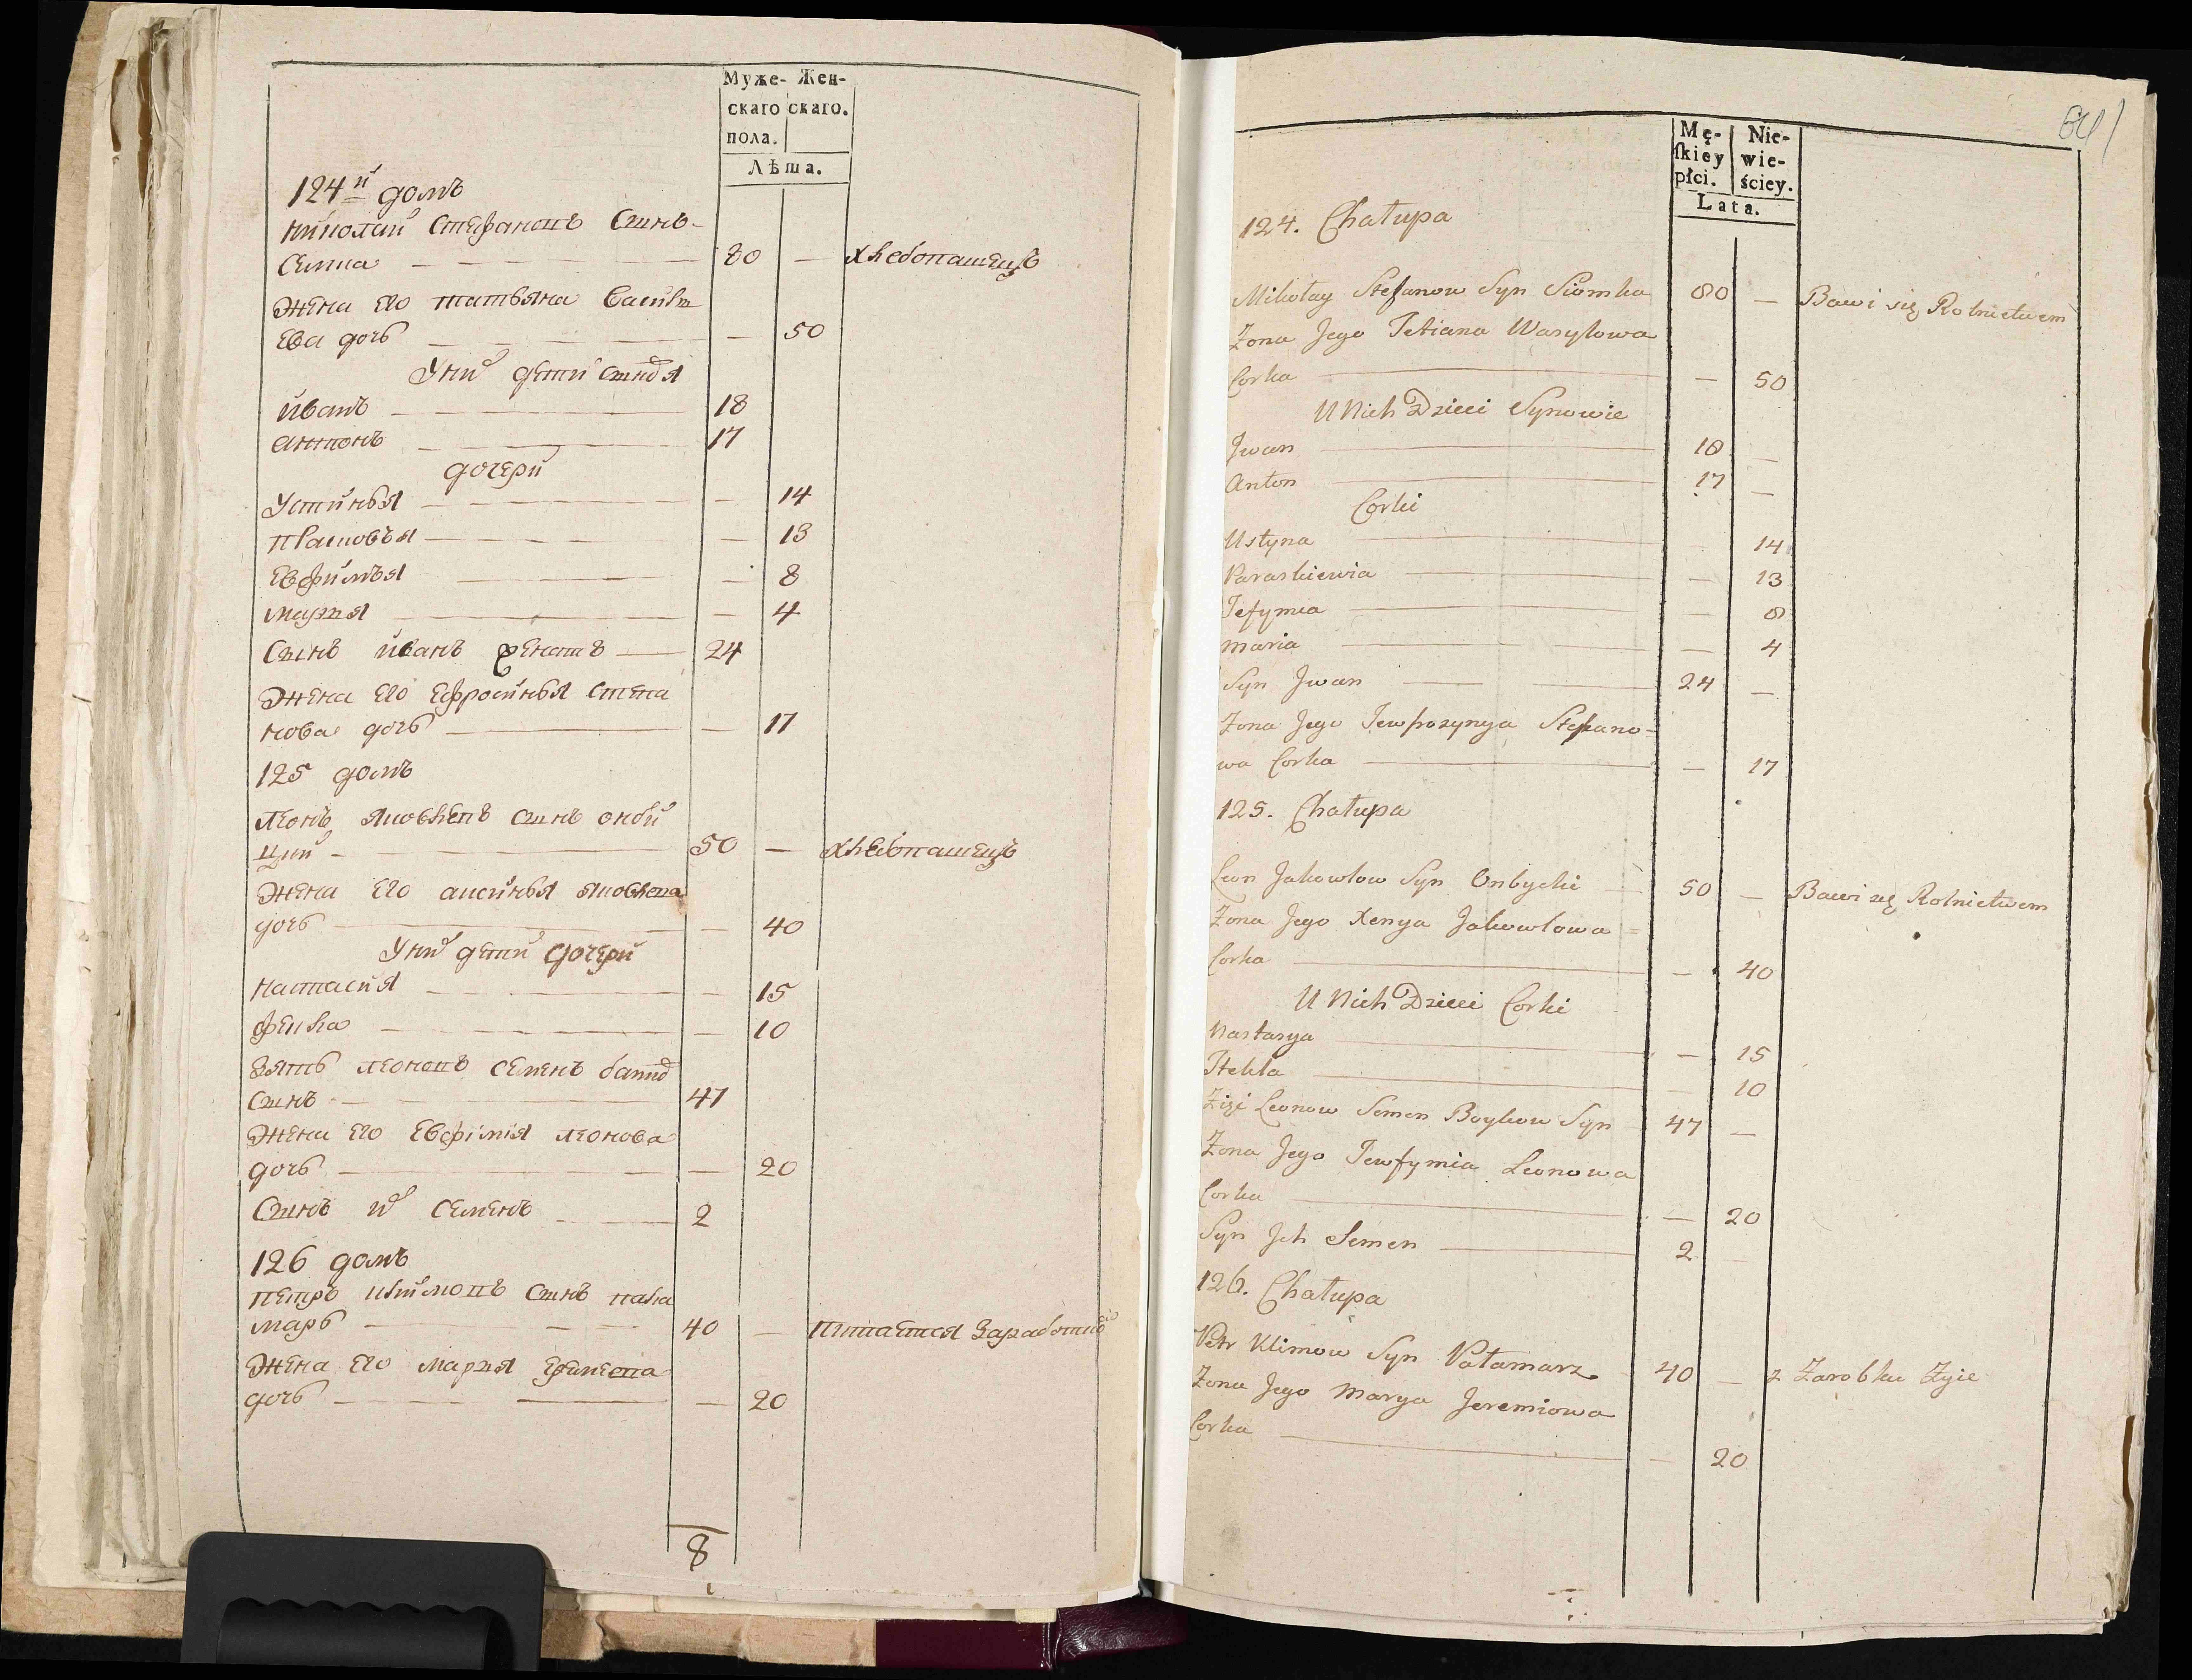 Муже- Жен-
скаго скаго.
пола.
Лѣта.
124й домъ
Николай Стефановъ Сынъ
Семка 80 — хлебопашецъ
Жена его татьяна Василь
ева дочь — 50
У них дети сыновья
иванъ 18
антонъ 17
дочери
Устинья — 14
13
Евфимья — 8
Марья — 4
Сынъ иванъ женатъ 24
Жена его Ефросинья Степа
нова дочь — 17
125 домъ
леонъ яковлевъ сынъ онбы
цкий 50 — хлебопашецъ
Жена его аксинья яковлева
дочь — 40
У них дети дочери
Настасия — 15
Фекла — 10
Зять леоновъ семенъ
сынъ 47
Жена его Евфимия леонова
дочь — 20
Сынъ их семенъ 2
126 домъ
петръ климовъ сынъ пала
марь 40 — питается заработко
Жена его марья еремеева
дочь — 20
8
641
Mę- Nie-
skiey wie-
płci. ściey.
Lata.
124. Chałupa
Mikołay Stefanow Syn Siomka 80 — Bawi się Rolnictwem
Zona Jego Tetiana Wasylowa
Corka — 50
U Nich Dzieci Synowie
Jwan 18 —
Anton 17 —
Corki
Ustyna 14
Paraskiewia — 13
Jefymia — 8
Maria — 4
Syn Jwan 24 —
Zona Jego Jewfrozynya Stefano=
wa Corka — 17
125. Chałupa
Leon Jakowlow Syn Onbycki 50 — Bawi się Rolnictwem
Zona Jego Xenya Jakowlowa =
Corka — 40
U Nich Dzieci Corki
Nastasya — 15
Tekla 10
Zięć Leonow Semen Boykow Syn 47 —
Zona Jego Jewfymia Leonowa
Corka — 20
Syn Jch Semen 2 —
126. Chałupa
Petr Klimow Syn Pałamarz 40 — z Zarobku Zyie
Zona Jego Marya Jeremiowa
Corka — 20